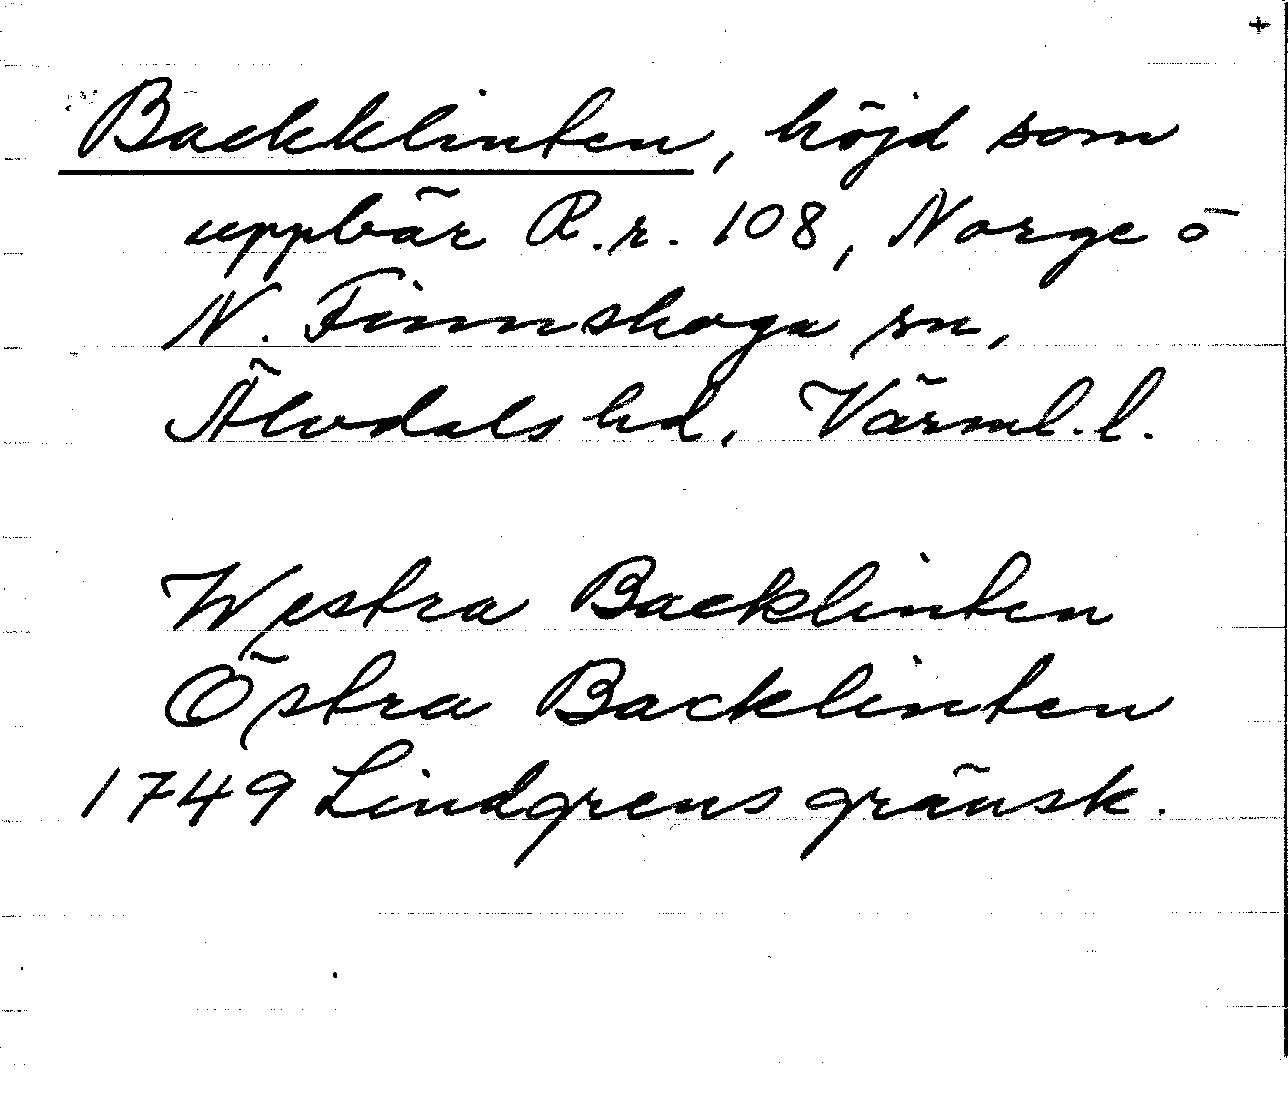 +
Backklinten, höjd som
uppbär R.r. 108, Norge o
N. Finnskoga sn,
Älvdals hd, Värml. l.
Westra Backlinten
Östra Backlinten
1749 Lindgrens gränsk.